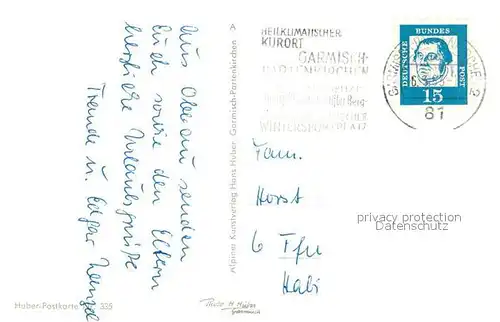 Aus Oberau senden
Euch sowie den Eltern
herzliche Urlaubsgrüße
Traude u. Edgar
A
Alpiner Kunstverlag Hans Huber Garmisch-Partenkirchen
Huber-Postkarte 325
Photo H Huber
Garmisch
HEILKLIMATISCHER
KURORT
GARMISCH-
PARTENKIRCHEN
WINTERSPORTPLATZ
81
2
DEUTSCHE BUNDES POST
15
Fam.
Horst
6 Ffm
privacy protection
Datenschutz